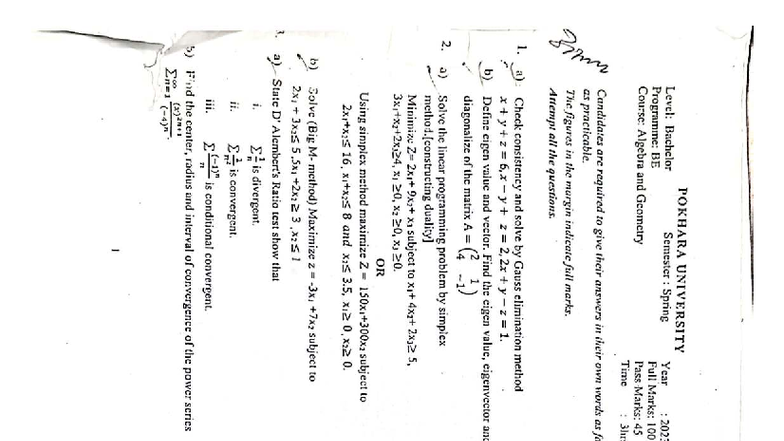 POKHARA UNIVERSITY
Level: Bachelor Semester : Spring Year : 202
Programme: BE Full Marks: 100
Course: Algebra and Geometry Pass Marks: 45
Time : 3h
Candidates are required to give their answers in their own words as f
as practicable.
The figures in the margin indicate full marks.
Attempt all the questions.
1. a) Check consistency and solve by Gauss elimination method
x + y + z = 6, x − y + z = 2, 2x + y − z = 1.
b) Define eigen value and vector. Find the eigen value, eigenvector and
diagonalize of the matrix A = (2 1
4 −1)
2. a) Solve the linear programming problem by simplex
method.[constructing duality]
Minimize Z= 2x₁+ 9x₂+ x₃ subject to x₁+ 4x₂+ 2x₃≥ 5,
3x₁+x₂+2x₃≥4, x₁ ≥0, x₂ ≥0, x₃ ≥0.
OR
Using simplex method maximize Z = 150x₁+300x₂ subject to
2x₁+x₂≤ 16, x₁+x₂≤ 8 and x₂≤ 3.5, x₁≥ 0, x₂≥ 0.
b) Solve (Big M- method) Maximize z = -3x₁ +7x₂ subject to
2x₁ + 3x₂≤ 5 ,5x₁ +2x₂ ≥ 3 ,x₂ ≤ 1
3. a) State D' Alembert's Ratio test show that
i. ∑ 1/n is divergent.
ii. ∑ 1/n² is convergent.
iii. ∑ (−1)ⁿ/n is conditional convergent.
b) Find the center, radius and interval of convergence of the power series
1